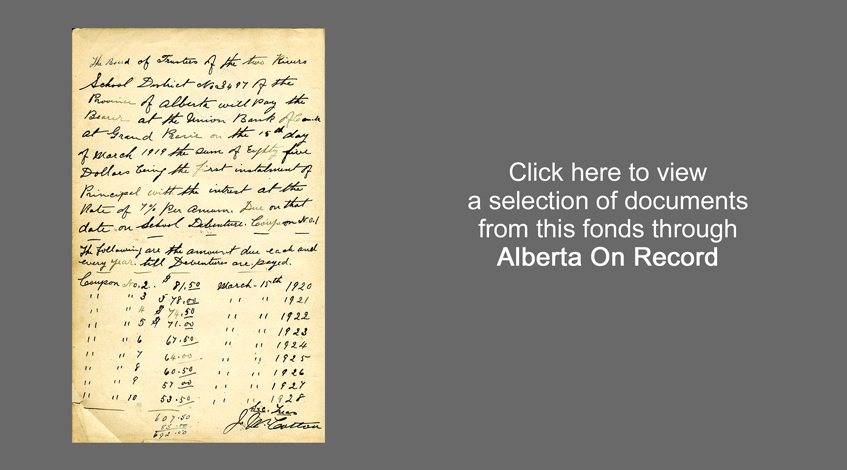 The Board of Trustees of the two Rivers
School District No 3497 of the
Province of Alberta will Pay the
Bearer at the Union Bank of
at Grand Prairie on the 15th day
of March 1919 the sum of Eighty five
Dollars being the first instalment of
Principal with the intrest at the
Rate of 7% Per Annum. Due on that
date on School Debenture. Coupon No.1
The following are the amount due each and
every year. till Debentures are payed.
Coupon No.2. $ 81.50 March - 15th 1920
" " 3 $ 78.00 " " 1921
" " 4 $ 74.50 " " 1922
" " 5 $ 71.00 " " 1923
" " 6 67.50 " " 1924
" " 7 64.00 " " 1925
" " 8 60.50 " " 1926
" " 9 57.00 " " 1927
" " 10 53.50 " " 1928
607.50
85.00
692.50
Click here to view
a selection of documents
from this fonds through
Alberta On Record